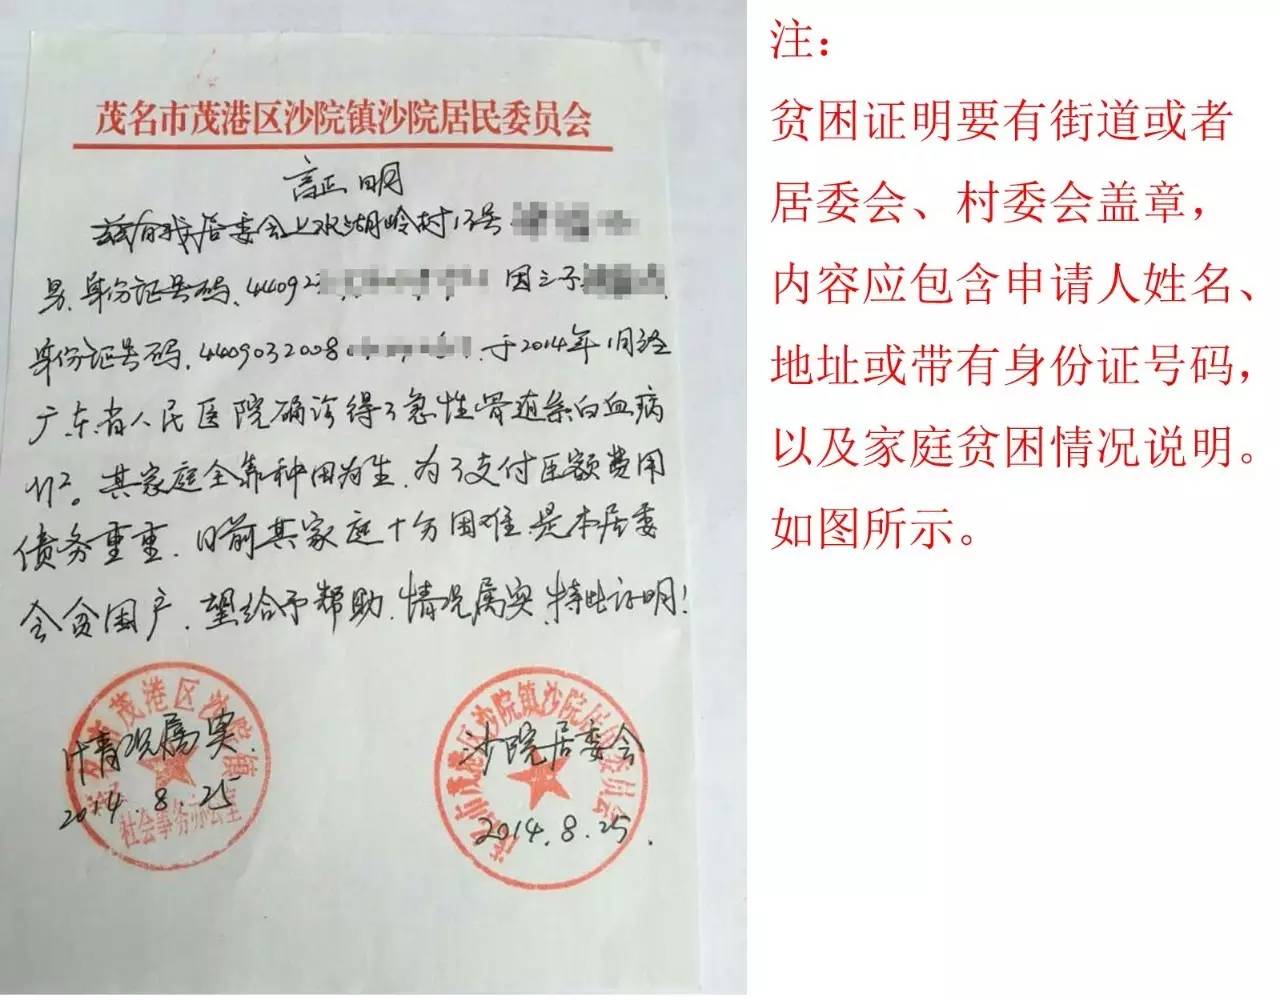 茂名市茂港区沙院镇沙院居民委员会
証明
兹有我居委会上水湖岭村13号
男,身份证号码,44092 因之子
身份证号码,4409032008 于2014年1月经
广东省人民医院确诊得了急性骨造条白血病
M2。其家庭全靠种田为生,为了支付巨额费用
债务重重,目前其家庭十分困难,是本居委
会贫困户,望给予帮助,情况属实,特此证明!
茂港区沙院镇
情况属实.
2014.8.25
社会事务办公室
茂港区沙院镇沙院居民委员会
沙院居委会
2014.8.25.
注:
贫困证明要有街道或者
居委会、村委会盖章,
内容应包含申请人姓名、
地址或带有身份证号码,
以及家庭贫困情况说明。
如图所示。